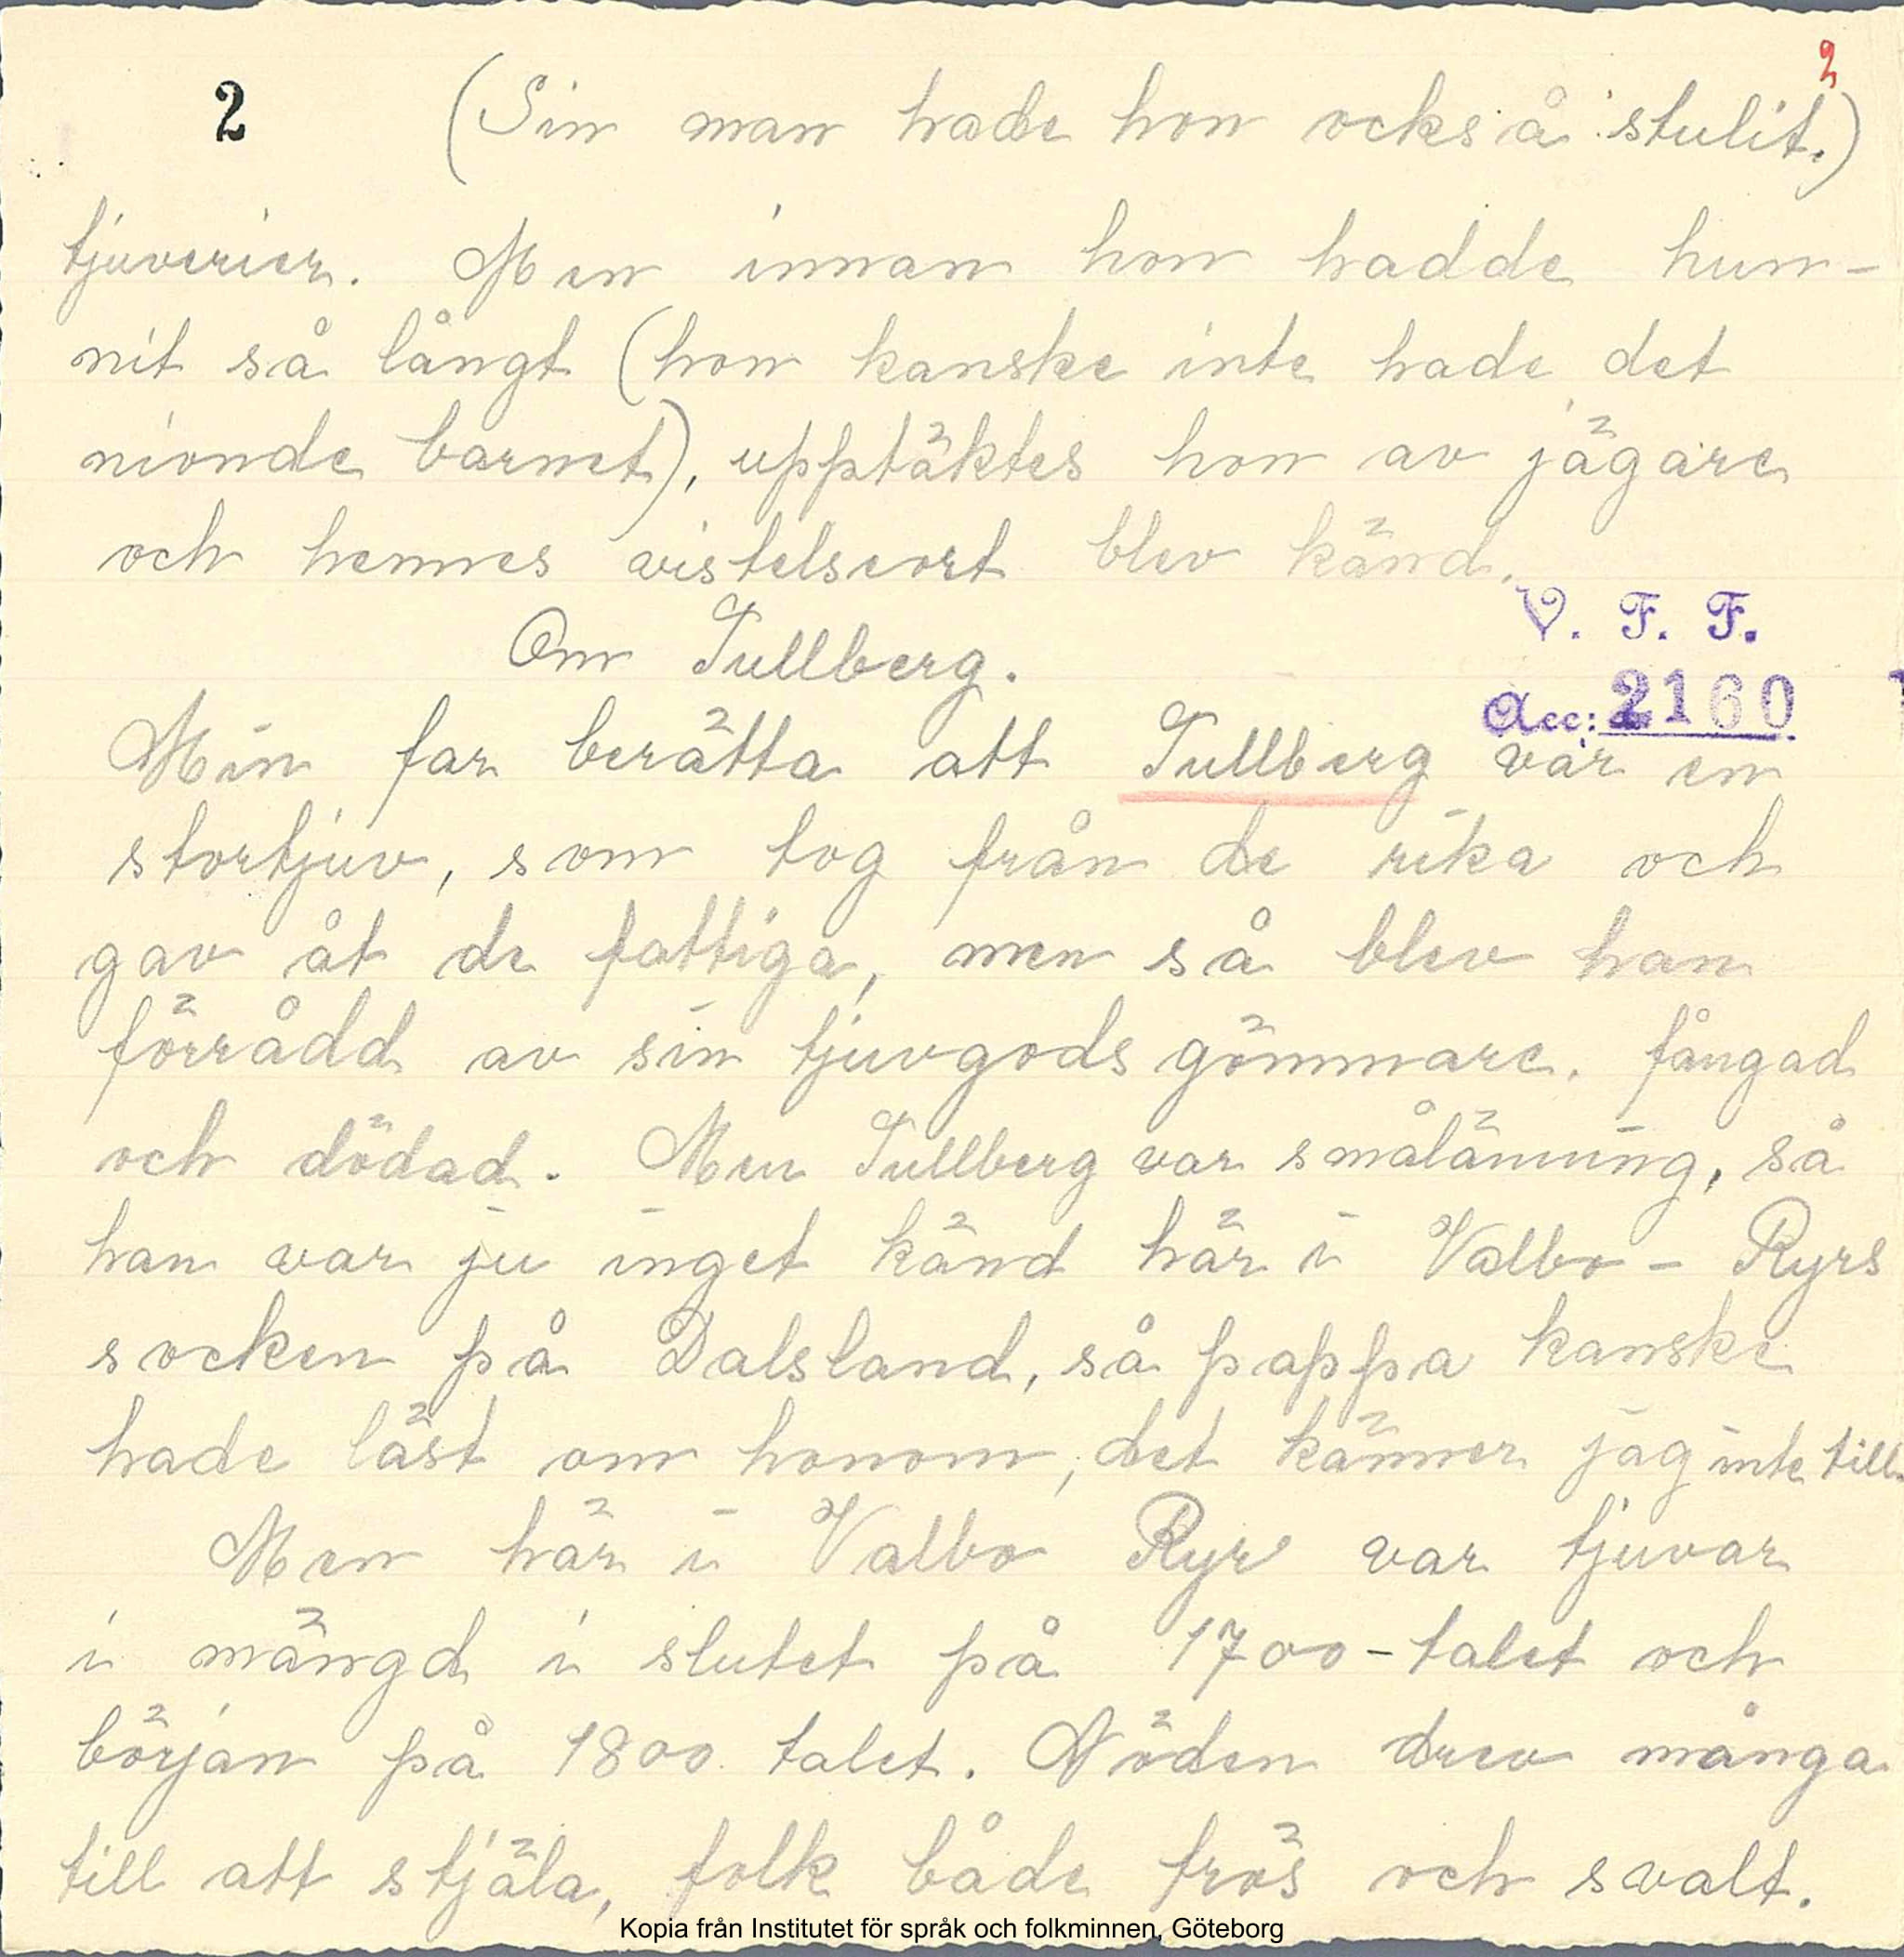 2
2
(Sin man hade hon också stulit.)
tjuverier. Men innan hon hadde hun-
nit så långt (hon kanske inte hade det
nionde barnet), upptäktes hon av jägare
och hennes vistelseort blev känd.
V. F. F.
Om Tullberg.
Acc: 2160
Min far berätta att Tullberg var en
stortjuv, som tog från de rika och
gav åt de fattiga, men så blev han
förrådd av sin tjuvgodsgömmare. fångad
och dödad. Men Tullberg var smålänning, så
han var ju inget känd här i Valbo - Ryrs
socken på Dalsland, så pappa kanske
hade läst om honom, det känner jag inte till.
Men här i Valbo Ryr var tjuvar
i mängd i slutet på 1700-talet och
början på 1800 talet. Nöden drev många
till att stjäla, folk både frös och svalt.
Kopia från Institutet för språk och folkminnen, Göteborg